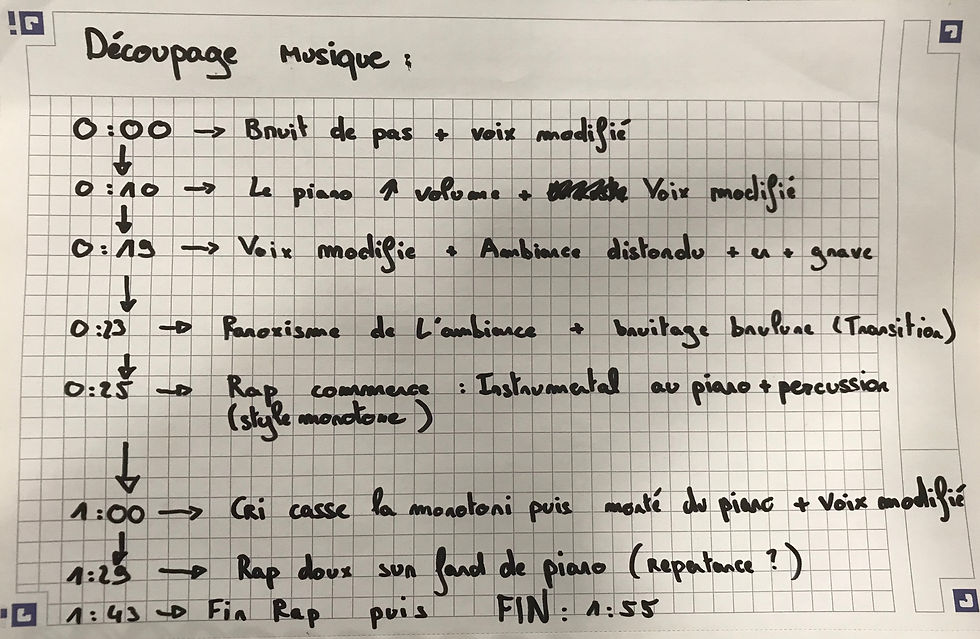 Découpage Musique :
0:00 → Bruit de pas + voix modifié
0:10 → Le piano ↑ volume + Voix modifié
0:19 → Voix modifie + Ambiance distondu + en + grave
0:23 → Paroxisme de L'ambiance + bruitage brulure (Transition)
0:25 → Rap commence : Instrumental au piano + percussion
(style monotone)
1:00 → Cri casse la monotoni puis monté du piano + Voix modifié
1:29 → Rap doux sur fond de piano (Repentance ?)
1:43 → Fin Rap puis FIN : 1:55